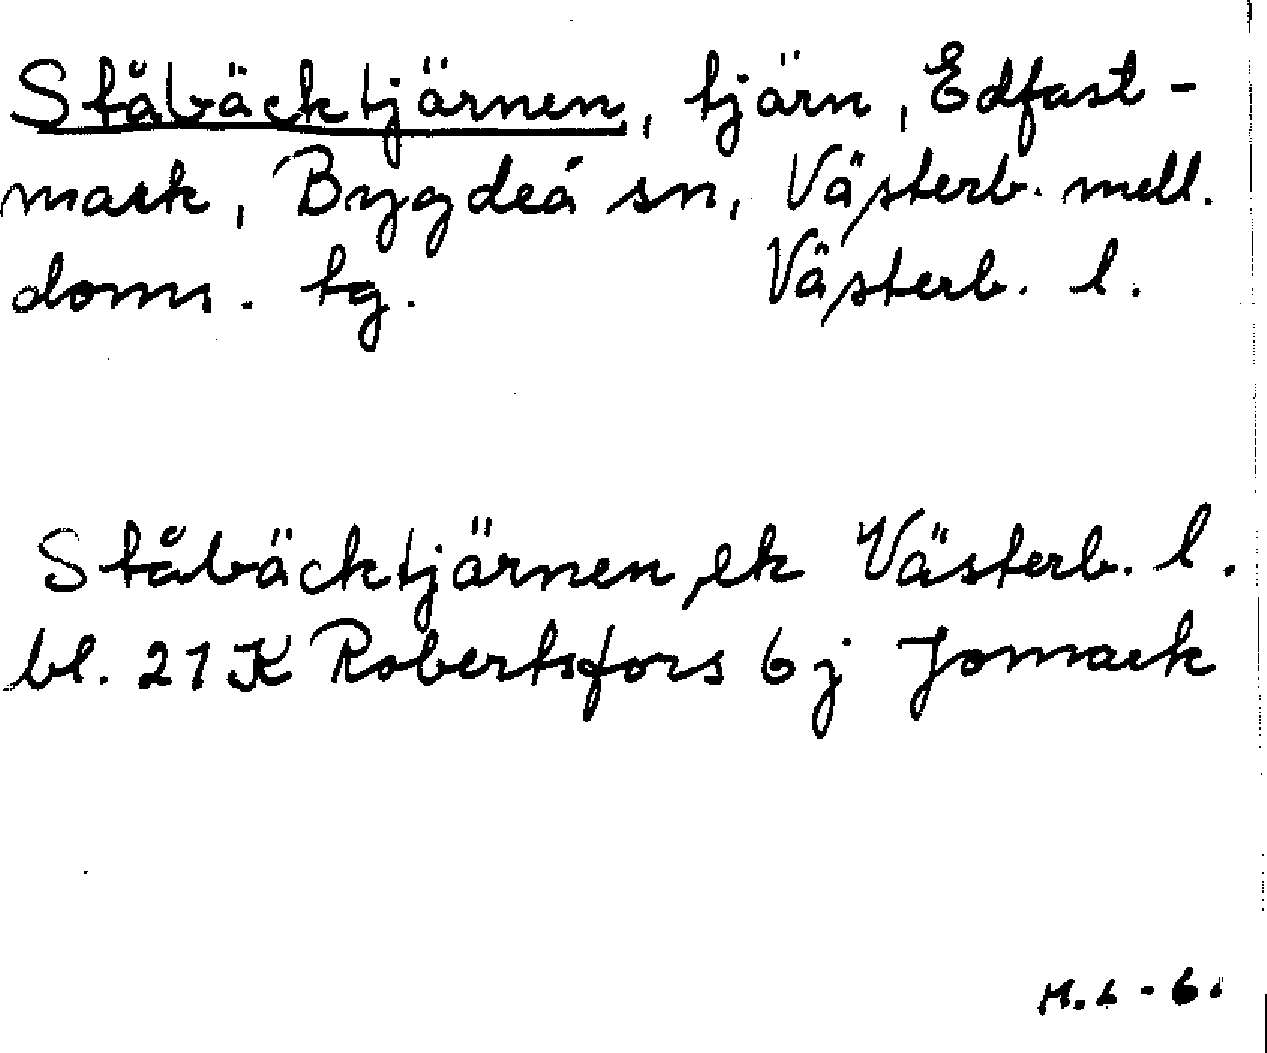 Ståbäcktjärnen, tjärn, Edfast-
mark, Bygdeå sn, Västerb. mell.
doms. tg. Västerb. l.
Ståbäcktjärnen, ek Västerb. l.
bl. 21 K Robertsfors 6 j Jomark